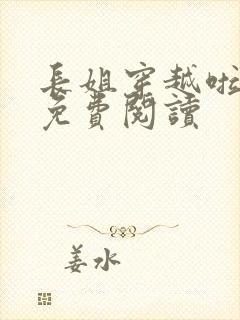 長姐穿越啦
免費閱讀
姜水